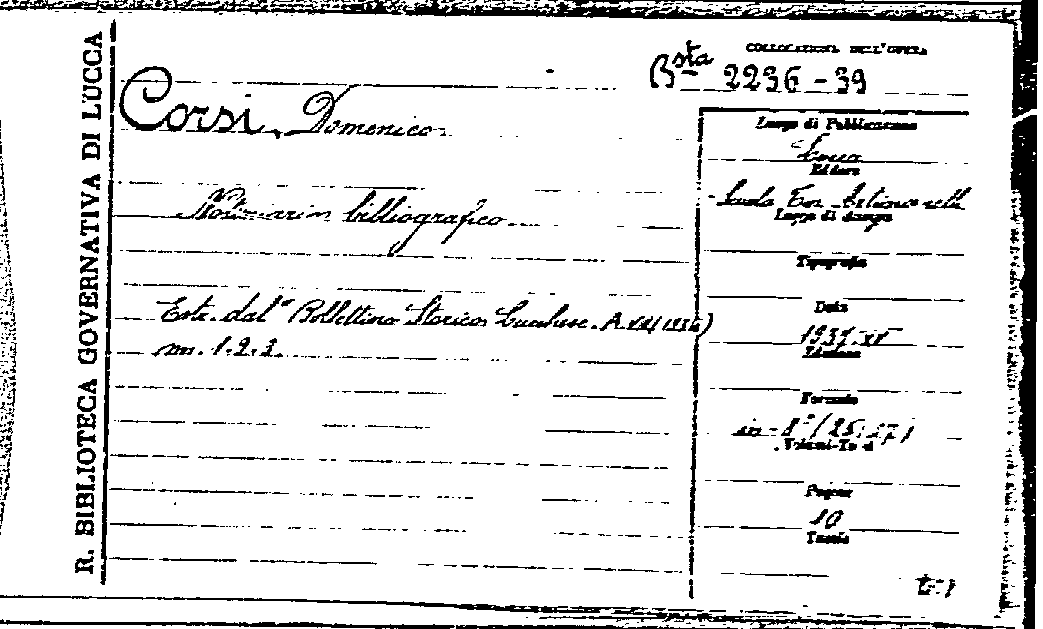 R. BIBLIOTECA GOVERNATIVA DI LUCCA
COLLOCAZIONE DELL'OPERA
Bsta 2236-39
Corsi, Domenico
Notiziario bibliografico
Estr. dal "Bollettino Storico Lucchese. A. VIII (1936)
nn. 1.2.3.
Luogo di Pubblicazione
Lucca
Editore
Scuola Tip. Artigianelli
Luogo di stampa
Tipografia
Data
1937.XV
Edizione
Formato
in-8° (25,
Volumi-Tomi
Pagine
10
Tavole